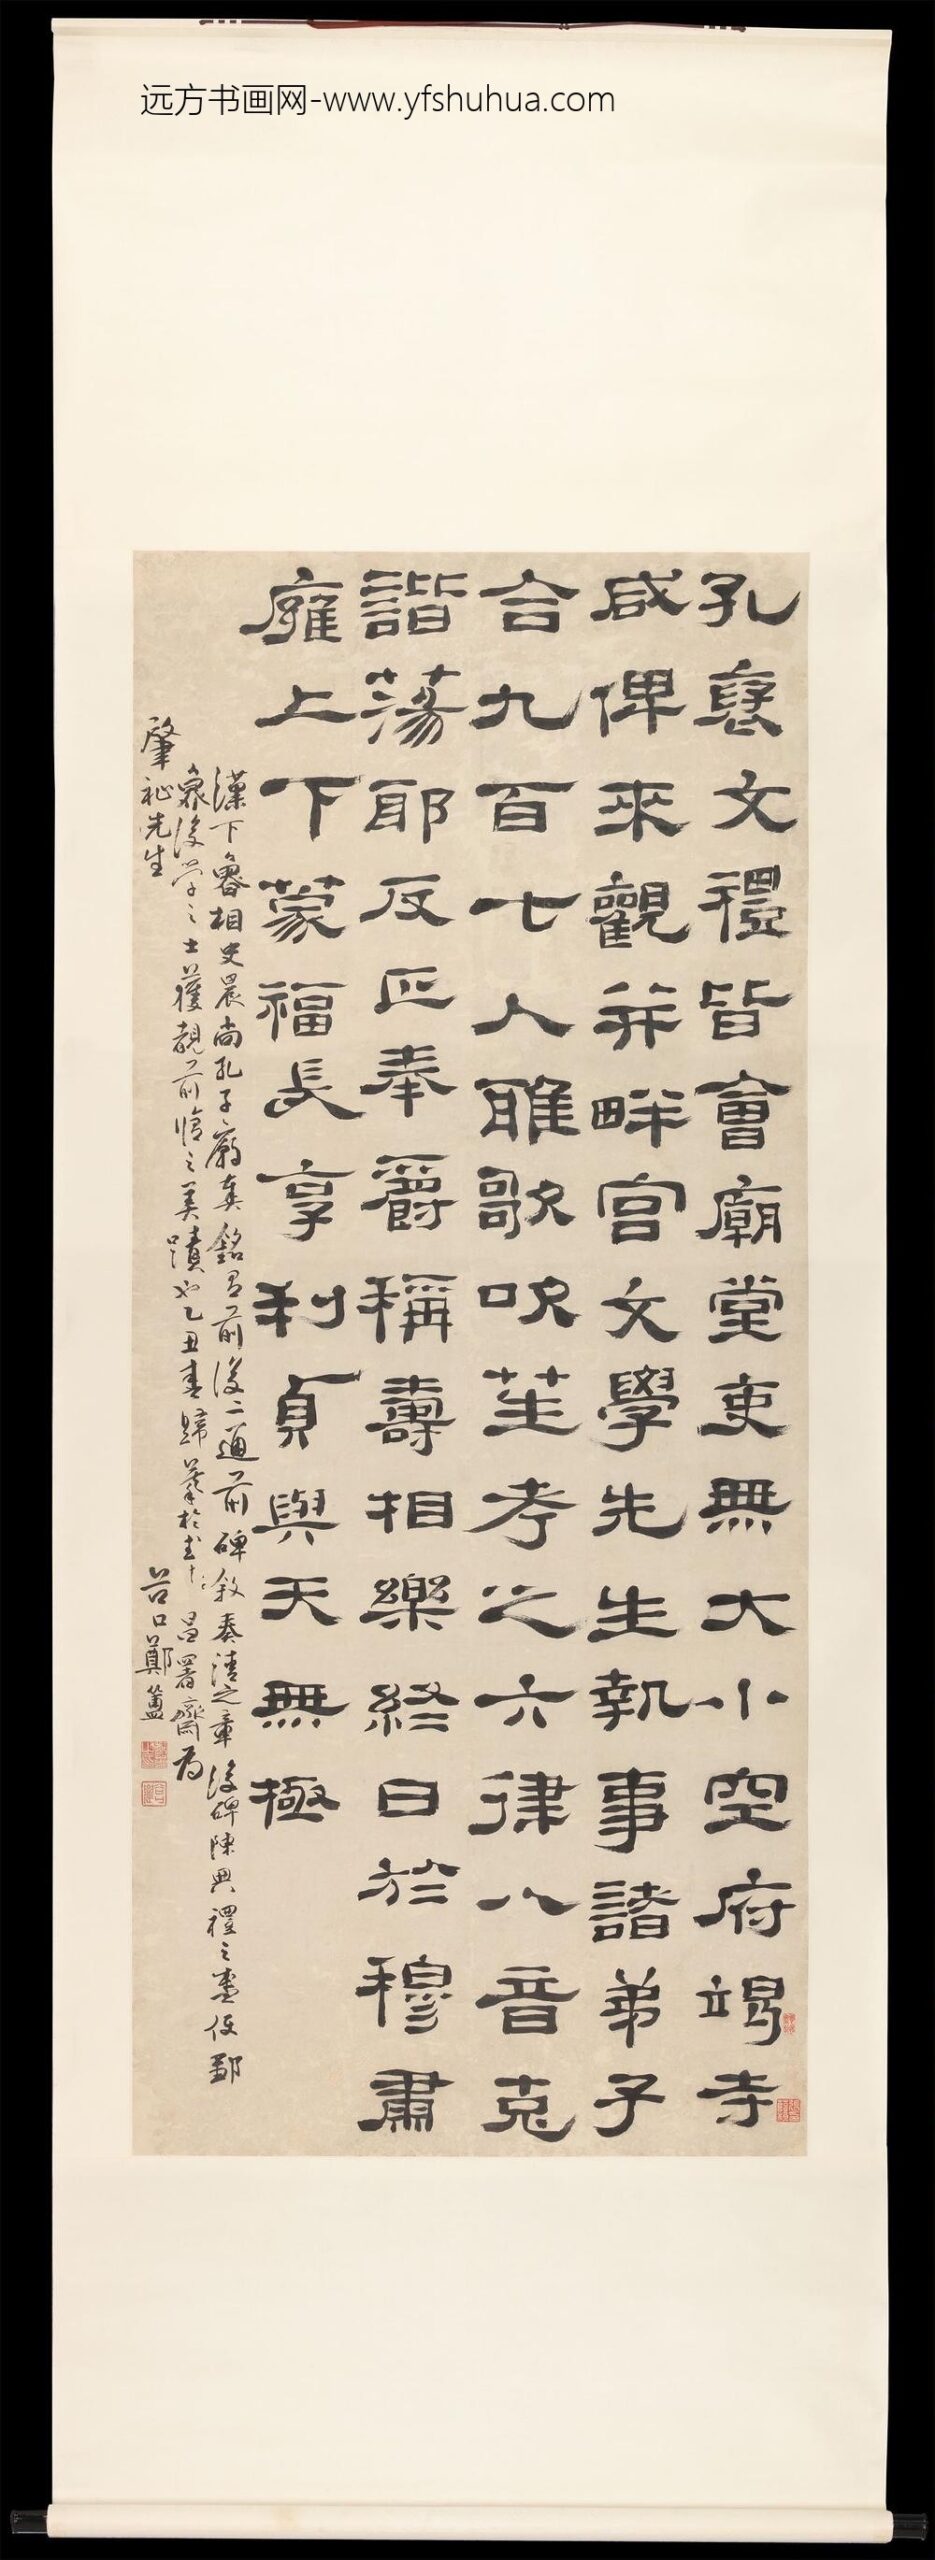 远方书画网-www.yfshuhua.com
孔襃文禮皆會廟堂吏無大小空府竭寺
咸俾來觀并畔宮文學先生執事諸弟子
合九百七人雅歌吹笙考之六律八音克
諧蕩邪反正奉爵稱壽相樂終日於穆肅
廱上下蒙福長享利貞與天無極
漢下魯相史晨尚孔子廟奏銘前後二通前碑敘奏請之章後碑陳典禮之盛使鄙
裹後學之士獲覩前脩之美蹟也乙丑春歸葊於昌署齋為
肇祉先生
谷口鄭簠